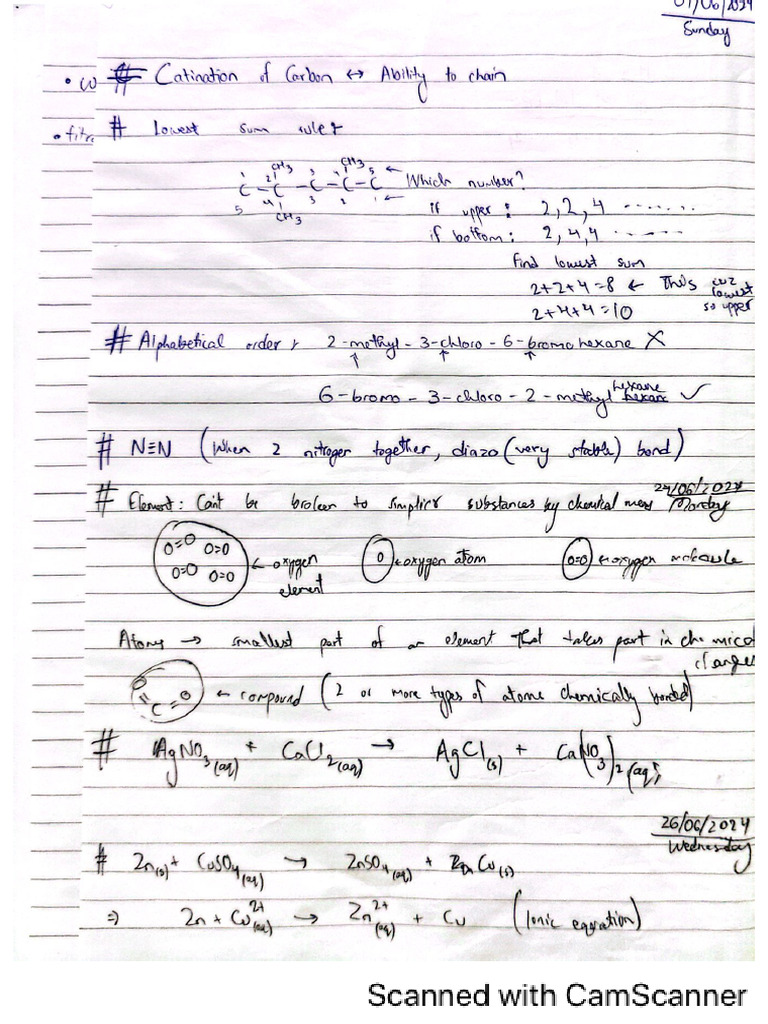 /06/2024
Sunday
# Catination of Carbon ↔ Ability to chain
# lowest sum rule
1 CH₃ 3 CH₃ 5
C - C - C - C - C ← Which number?
5 4 3 2 1
CH₃
if upper : 2, 2, 4 .......
if bottom : 2, 4, 4 ......
find lowest sum
2+2+4=8 ← This cuz lowest so upper
2+4+4=10
# Alphabetical order 2-methyl-3-chloro-6-bromo hexane X
6-bromo-3-chloro-2-methyl hexane ✓
# N≡N (When 2 nitrogen together, diazo (very stable) bond)
24/06/2024
Monday
# Element: Can't be broken to simplier substances by chemical
O=O O=O
O=O O=O
← oxygen element
O ← oxygen atom
O=O ← oxygen molecule
Atoms → smallest part of an element that takes part in chemical changes
O=C=O ← compound (2 or more types of atoms chemically bonded)
# AgNO₃(aq) + CaCl₂(aq) → AgCl(s) + Ca(NO₃)₂(aq)
26/06/2024
Wednesday
# Zn(s) + CuSO₄(aq) → ZnSO₄(aq) + Cu(s)
⇒ Zn + Cu²⁺(aq) → Zn²⁺(aq) + Cu (Ionic eqration)
Scanned with CamScanner